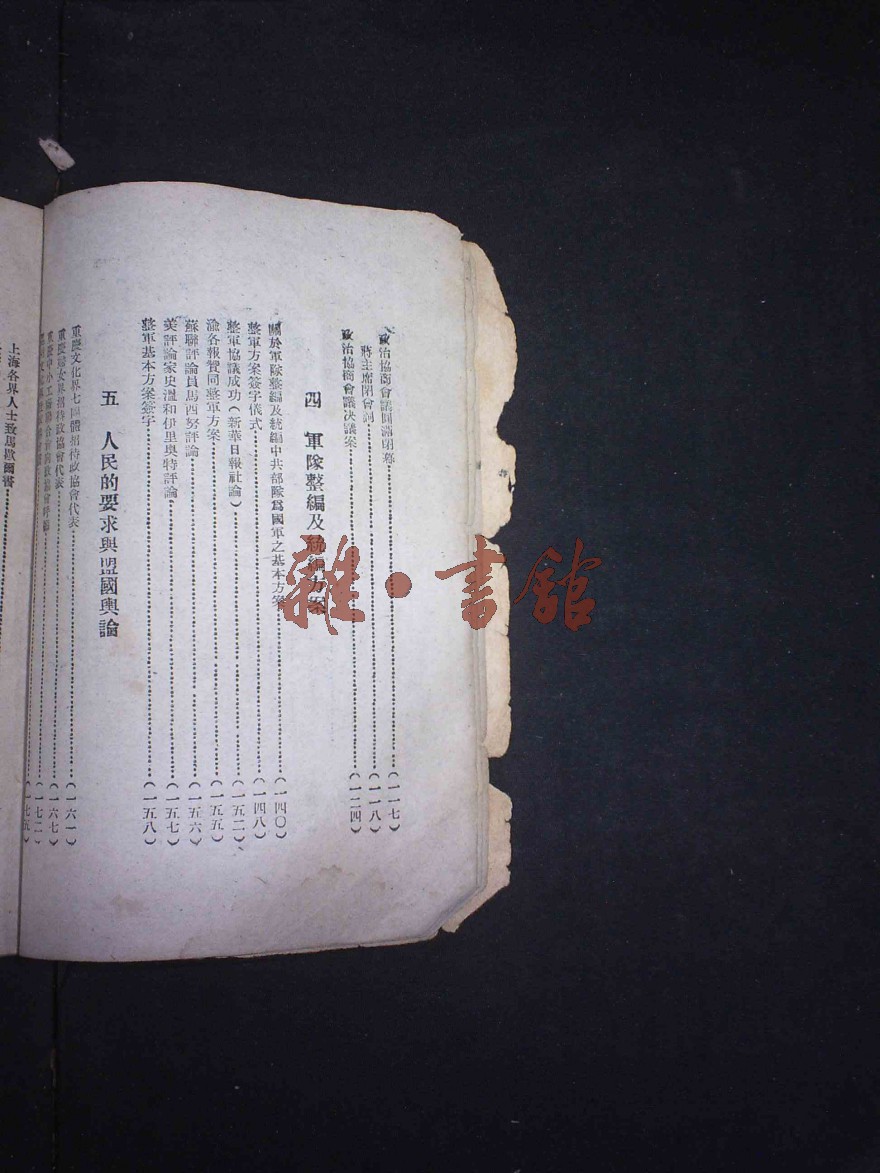 政治協商會議圓滿閉幕（一一七）
蔣主席閉會詞（一一八）
政治協商會議決議案（一二四）
四 軍隊整編及統編方案
關於軍隊整編及統編中共部隊為國軍之基本方案（一四〇）
整軍方案簽字儀式（一四八）
整軍協議成功（新華日報社論）（一五二）
渝各報贊同整軍方案（一五五）
蘇聯評論員馬西努評論（一五六）
美評論家史溫和伊里奧特評論（一五七）
整軍基本方案簽字（一五八）
五 人民的要求與盟國輿論
重慶文化界七團體招待政協會代表（一六一）
重慶婦女界招待政協會代表（一六七）
重慶中小工（一七二）
（一七五）
上海各界人士致馬歇爾書
雜·書館